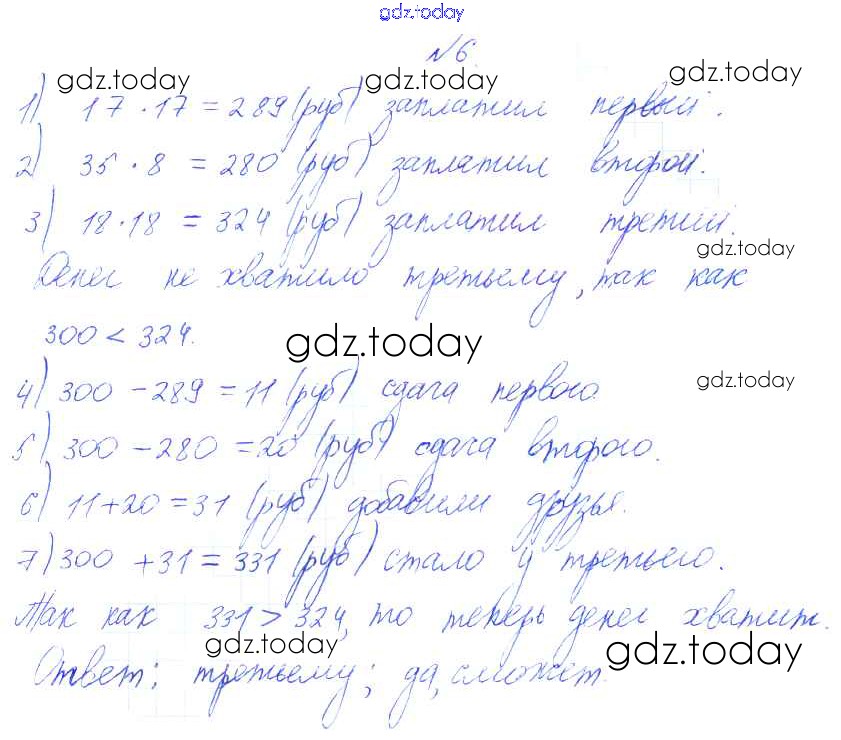 gdz.today
№6.
gdz.today gdz.today gdz.today
1) 17 · 17 = 289 (руб) заплатил первый.
2) 35 · 8 = 280 (руб) заплатил второй.
3) 18 · 18 = 324 (руб) заплатил третий.
gdz.today
Денег не хватило третьему, так как
300 < 324.
gdz.today
gdz.today
4) 300 - 289 = 11 (руб) сдача первого.
5) 300 - 280 = 20 (руб) сдача второго.
6) 11 + 20 = 31 (руб) добавили друзья.
7) 300 + 31 = 331 (руб) стало у третьего.
Так как 331 > 324, то теперь денег хватит.
gdz.today gdz.today
Ответ: третьему; да, сможет.